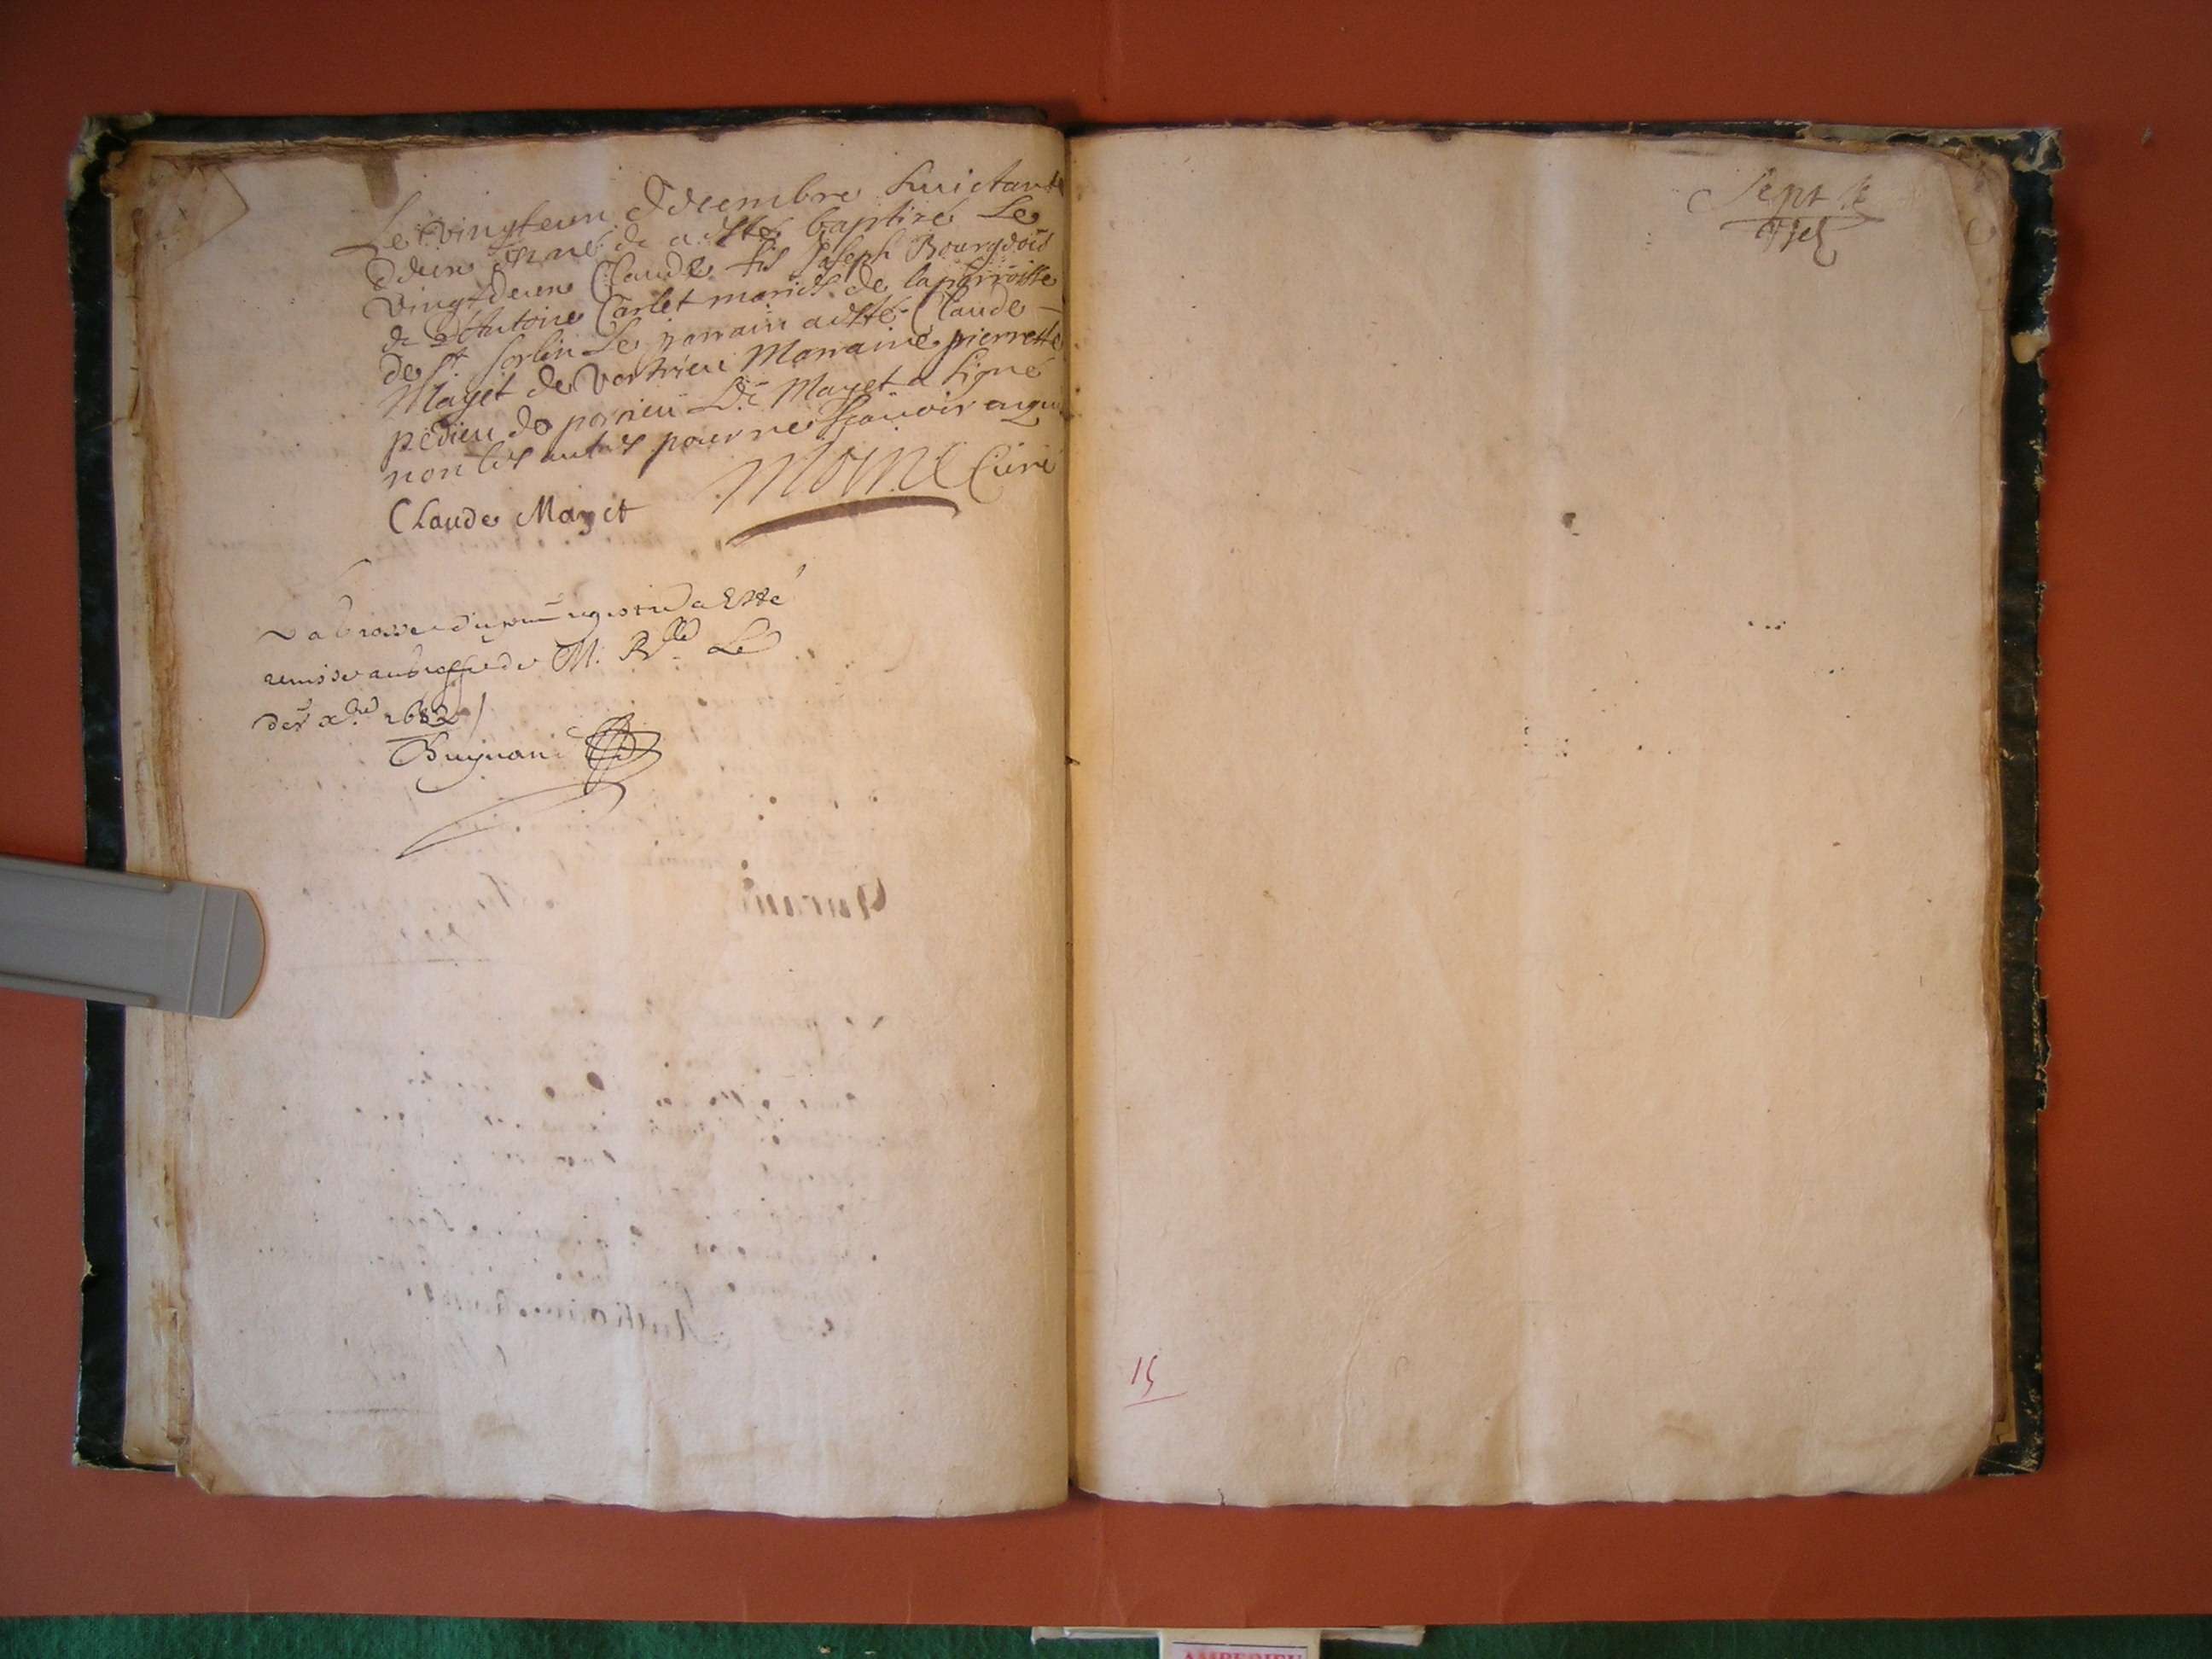 Le vingteun decembre huictante
deux est né & a esté baptizé Le
vingtdeux Claude fils Joseph Bourgeois
& d'Antoine Carlet mariés de la parroisse
de St Sorlin Le parrain a esté Claude
Mayet de Vertrieu Marraine pierrette
pedieu de porrieu Led. Mayet a signé
non les autres pour ne sçavoir enquis
Claude Mayet
Curé
La grosse du registre a Esté
remise au greffe de M. Le
der xbre 1682
Sept
15
AMBERIEU